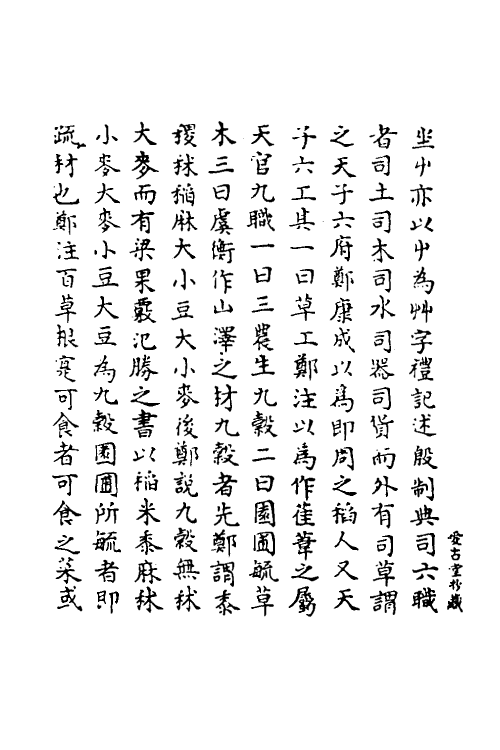 愛古堂抄藏
屮亦以屮為艸字禮記述殷制典司六職
者司土司木司水司器司貨而外有司草謂
之天子六府鄭康成以爲即周之稻人又天
子六工其一曰草工鄭注以爲作萑葦之屬
天官九職一曰三農生九穀二曰園圃毓草
木三曰虞衡作山澤之材九穀者先鄭謂黍
稷秫稻麻大小豆大小麥後鄭說九穀無秫
大麥而有梁果覈氾勝之書以稻米黍麻秫
小麥大麥小豆大豆為九穀園圃所毓者即
疏材也鄭注百草根寔可食者可食之菜或